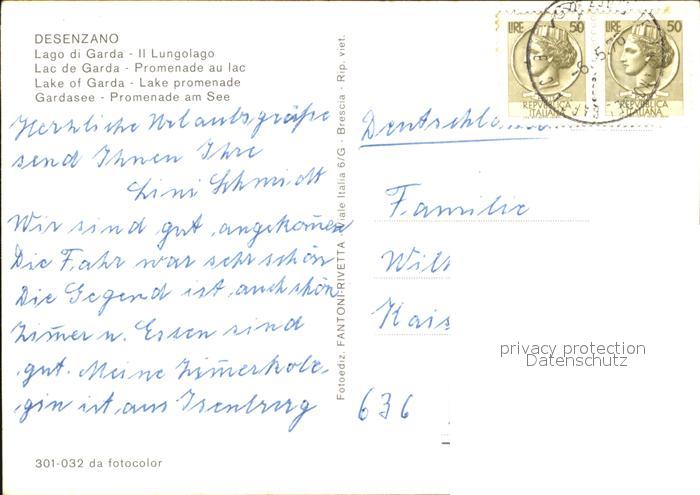 DESENZANO
Lago di Garda - Il Lungolago
Lac de Garda - Promenade au lac
Lake of Garda - Lake promenade
Gardasee - Promenade am See
Herzliche Urlaubsgrüße
send Ihnen Ihre
Lini Schmidt
Wir sind gut angekom̄en
Die Fahr war sehr schön
Die Gegend ist auch schön
Zim̄er u. Essen sind
gut. Meine Zim̄erkole-
gin ist aus Isenberg
301-032 da fotocolor
Fotoediz. FANTONI-RIVETTA Viale Italia 6/G - Brescia - Rip. viet.
LIRE 50
REPVBBLICA
ITALIANA
LIRE 50
REPVBBLICA
ITALIANA
Deutschland
Familie
Wil
Kais
636
privacy protection
Datenschutz